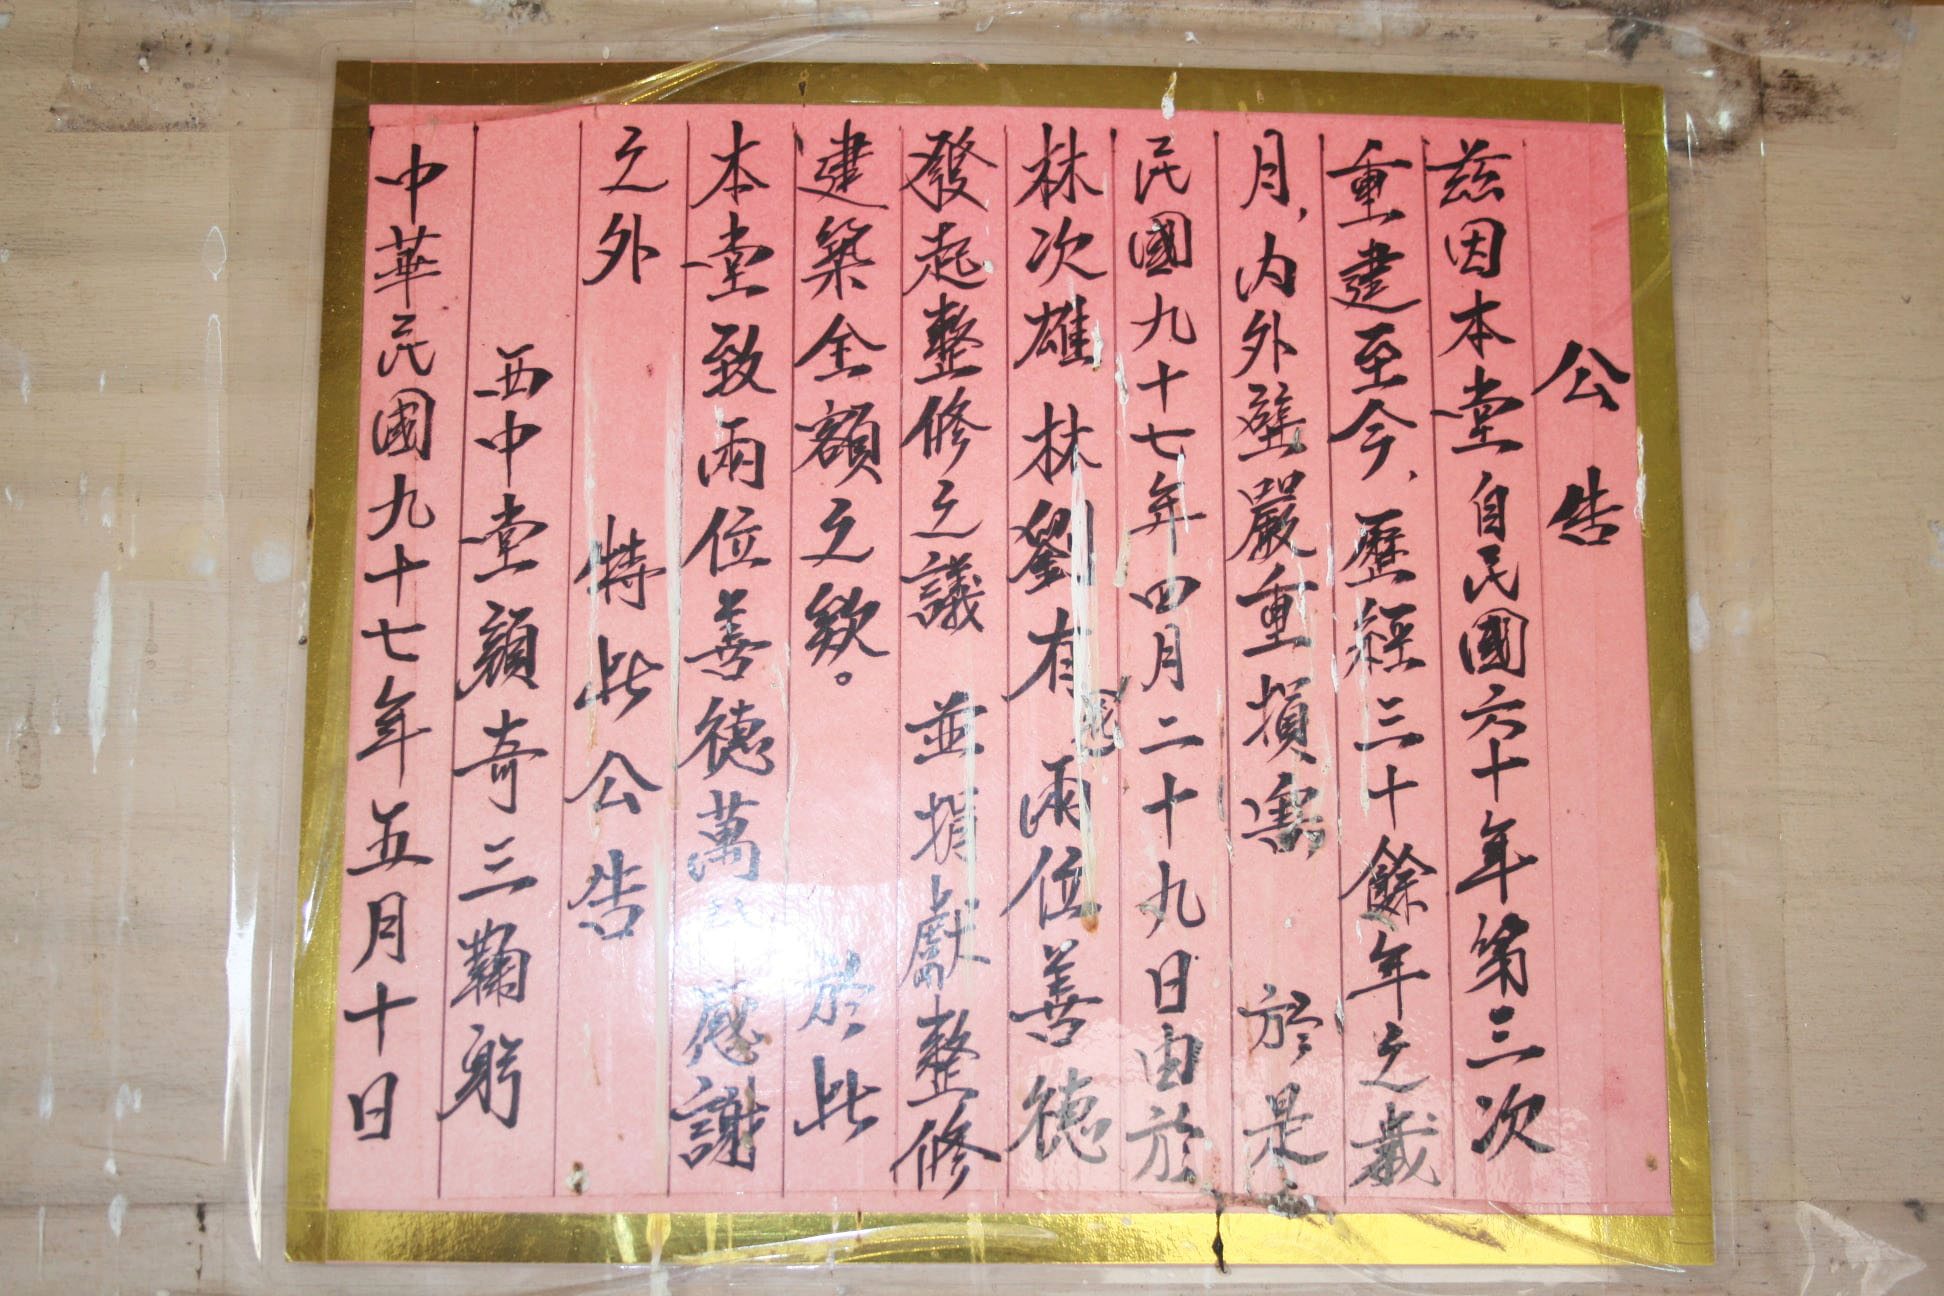 公告
茲因本堂自民國六十年第三次
重建至今，歷經三十餘年之歲
月，內外壁嚴重損害 於是
民國九十七年四月二十九日由於
林次雄 林劉有 兩位善德
發起整修之議 並捐獻整修
建築全額之款。 於此
本堂致兩位善德萬 感謝
之外 特此公告
西中堂顏奇三鞠躬
中華民國九十七年五月十日